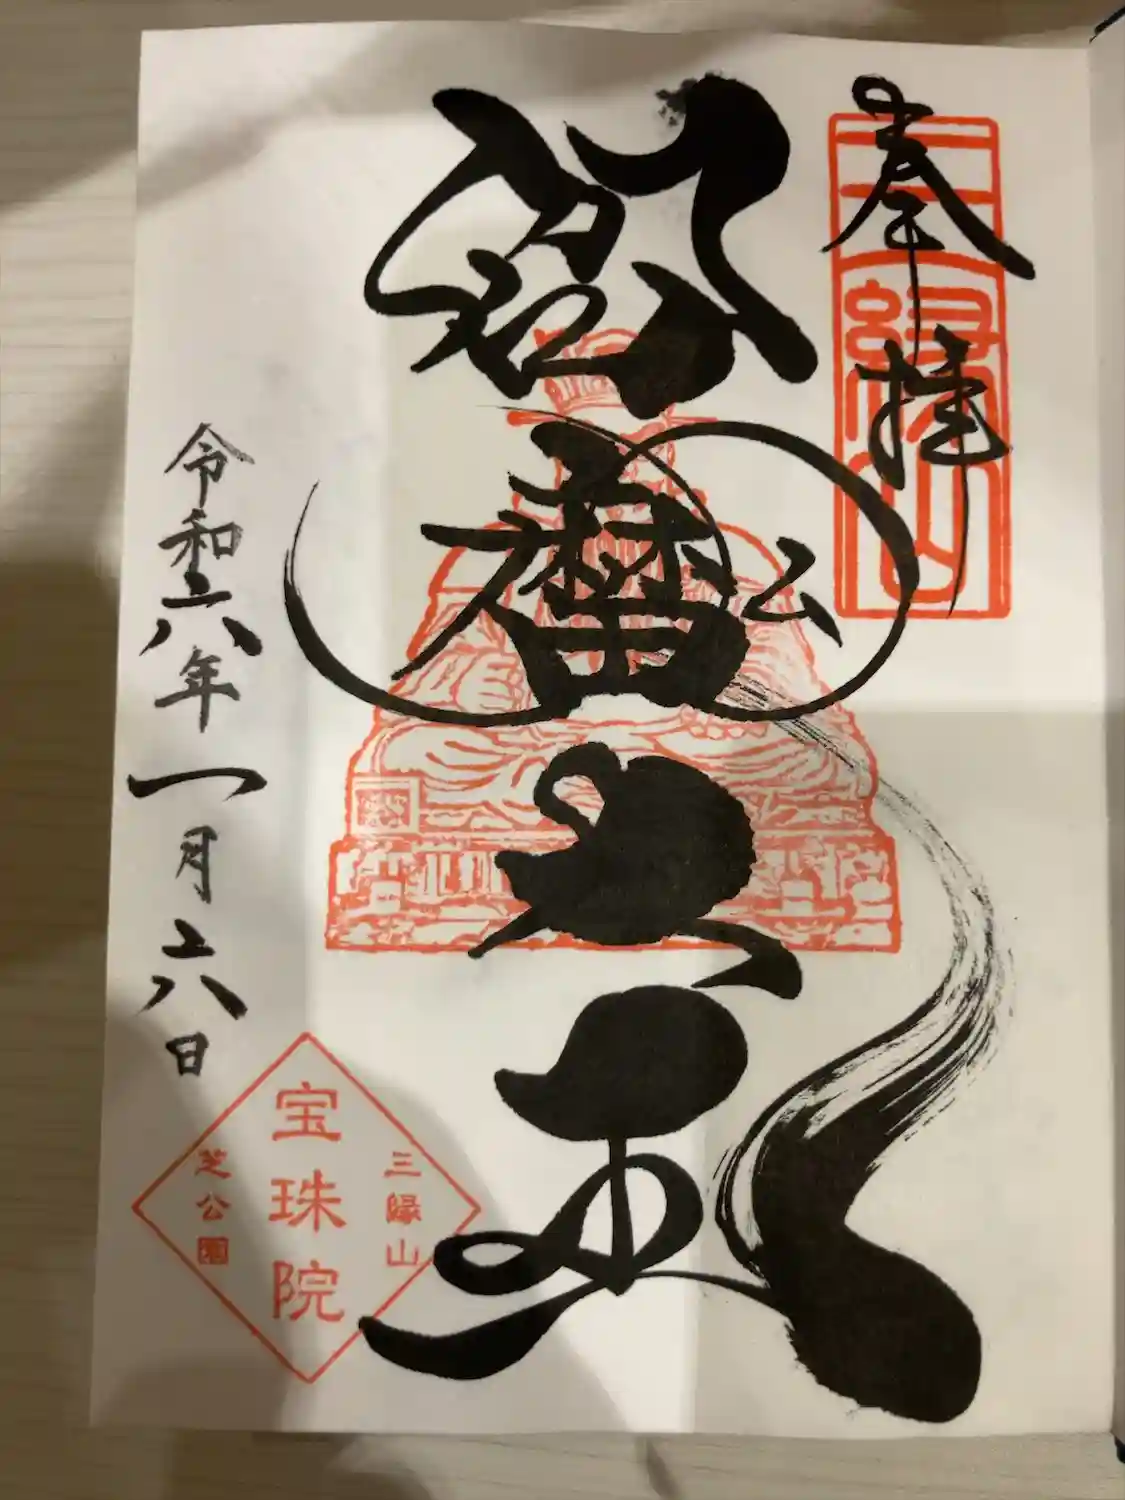 奉拝
三縁山
閻魔大王
令和六年一月六日
三縁山
宝珠院
芝公園